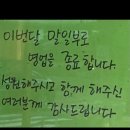 이번달 말일부로
영업을 종료합니다.
성원해주시고 함께 해주신
여러분께 감사드립니다